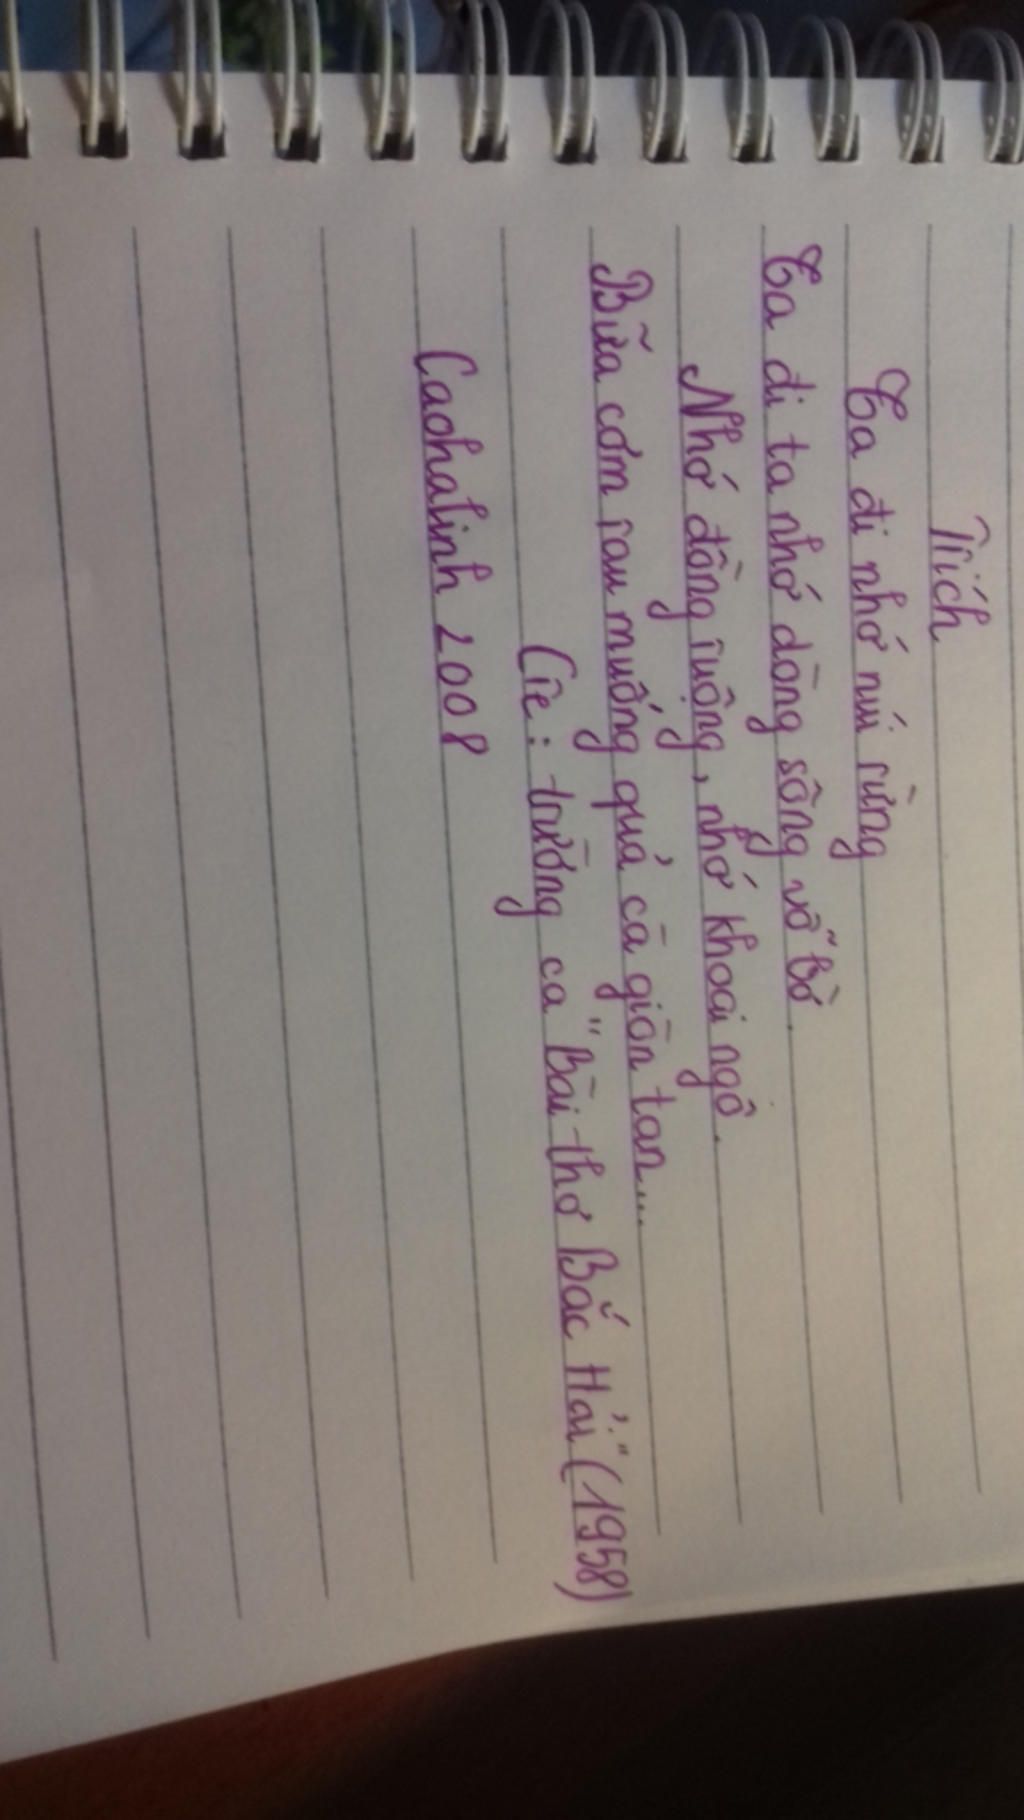 Trích
Ta đi nhớ núi rừng
Ta đi ta nhớ dòng sông vỗ bờ.
Nhớ đồng ruộng, nhớ khoai ngô.
Bữa cơm rau muống quả cà giòn tan...
Cre: trường ca "Bài thơ Bắc Hải" (1958)
Caohalinh 2008